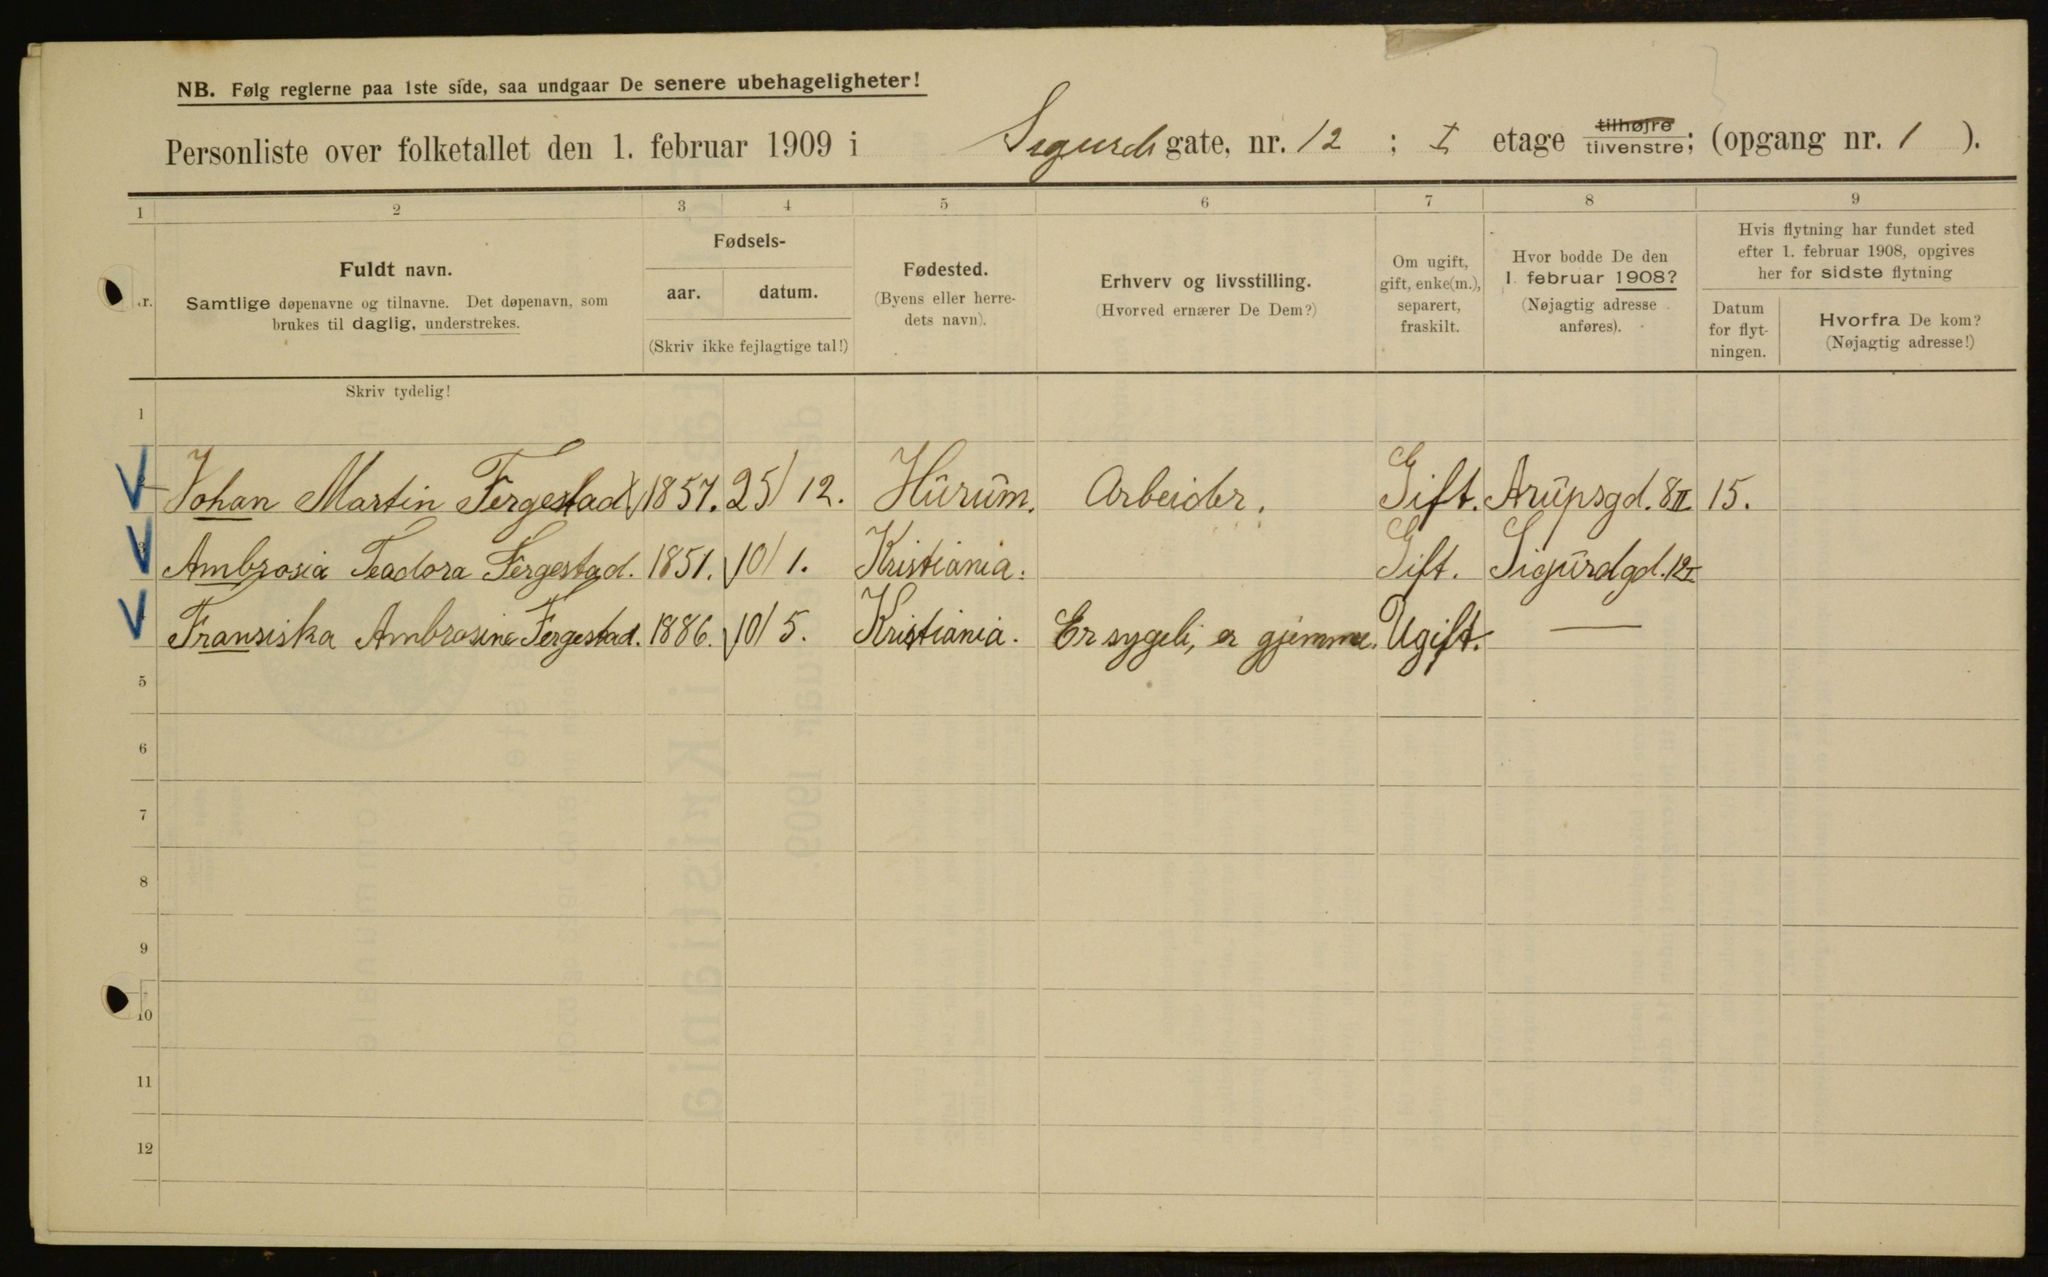 NB. Følg reglerne paa 1ste side, saa undgaar De senere ubehageligheter!
Personliste over folketallet den 1. februar 1909 i Sigurds gate, nr. 12 ; I etage tilhøjre tilvenstre; (opgang nr. 1 ).
1 2 3 4 5 6 7 8 9
Fuldt navn.
Samtlige døpenavne og tilnavne. Det døpenavn, som
brukes til daglig, understrekes.
Fødsels-
aar. datum.
(Skriv ikke fejlagtige tal!)
Fødested.
(Byens eller herre-
dets navn).
Erhverv og livsstilling.
(Hvorved ernærer De Dem?)
Om ugift,
gift, enke(m.),
separert,
fraskilt.
Hvor bodde De den
1. februar 1908?
(Nøjagtig adresse
anføres).
Hvis flytning har fundet sted
efter 1. februar 1908, opgives
her for sidste flytning
Datum
for flyt-
ningen.
Hvorfra De kom?
(Nøjagtig adresse!)
Skriv tydelig!
1
Johan Martin Fergestad 1857. 25/12. Hurum. Arbeider. Gift. Arupsgd. 8 II 15.
Ambrosia Teadora Fergestad. 1851. 10/1. Kristiania. Gift. Sigurdgd. 12 I
Fransiska Ambrosine Fergestad. 1886. 10/5. Kristiania. Er sygeli, er gjemme. Ugift. —
5
6
7
8
9
10
11
12